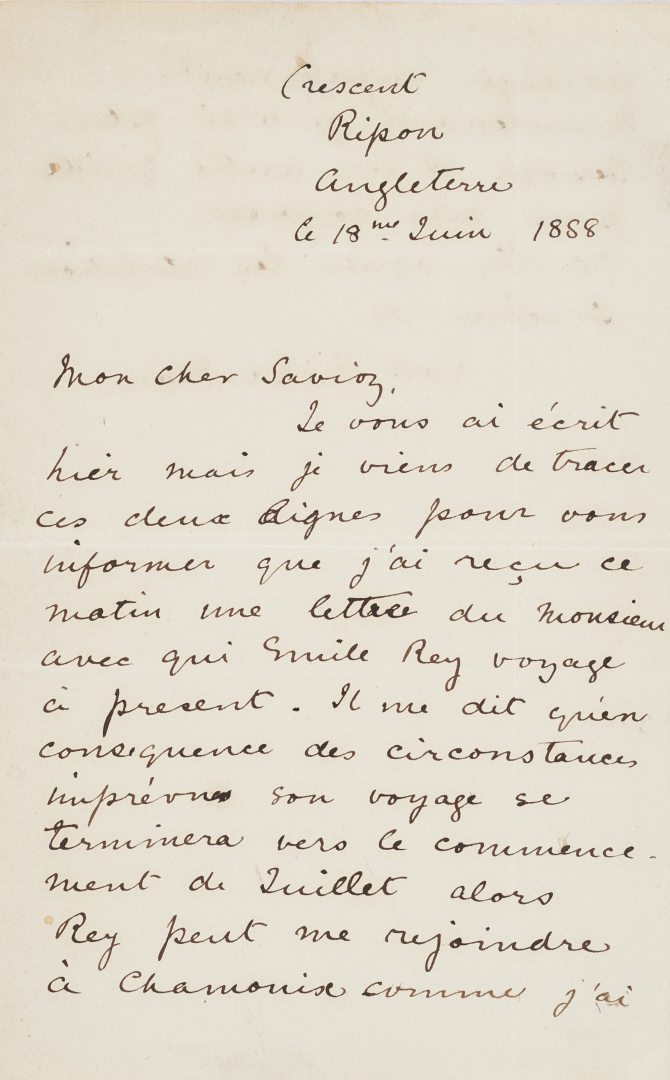 Crescent
Ripon
Angleterre
le 18me Juin 1888
Mon cher Savioz,
Je vous ai écrit
hier mais je viens de tracer
ces deux lignes pour vous
informer que j'ai reçu ce
matin une lettre du Monsieur
avec qui Emile Rey voyage
à present. Il me dit qu'en
consequence des circonstances
imprévues son voyage se
terminera vers le commence-
ment de Juillet alors
Rey peut me rejoindre
à Chamonix comme j'ai